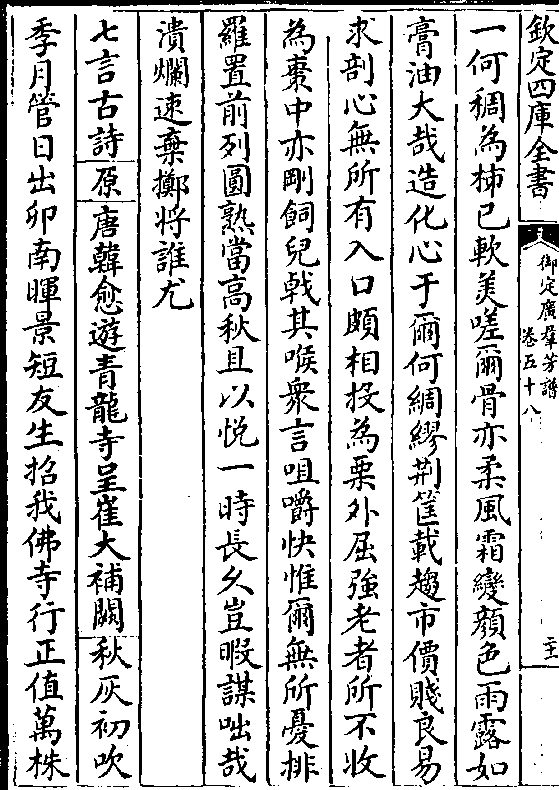 欽定四庫全書
御定廣羣芳譜
卷五十八
一何稠為柿已軟美嗟爾骨亦柔風霜變顔色雨露如
膏油大哉造化心于爾何綢繆荆筐載趨市價賤良易
求剖心無所有入口頗相投為栗外屈強老者所不收
為棗中亦剛飼兒戟其喉衆言咀嚼快惟爾無所憂排
羅置前列圓熟當高秋且以悦一時長久豈暇謀咄哉
潰爛速棄擲将誰尤
七言古詩原唐韓愈遊青龍寺呈崔大補闕秋灰初吹
季月管日出卯南暉景短友生招我佛寺行正值萬株